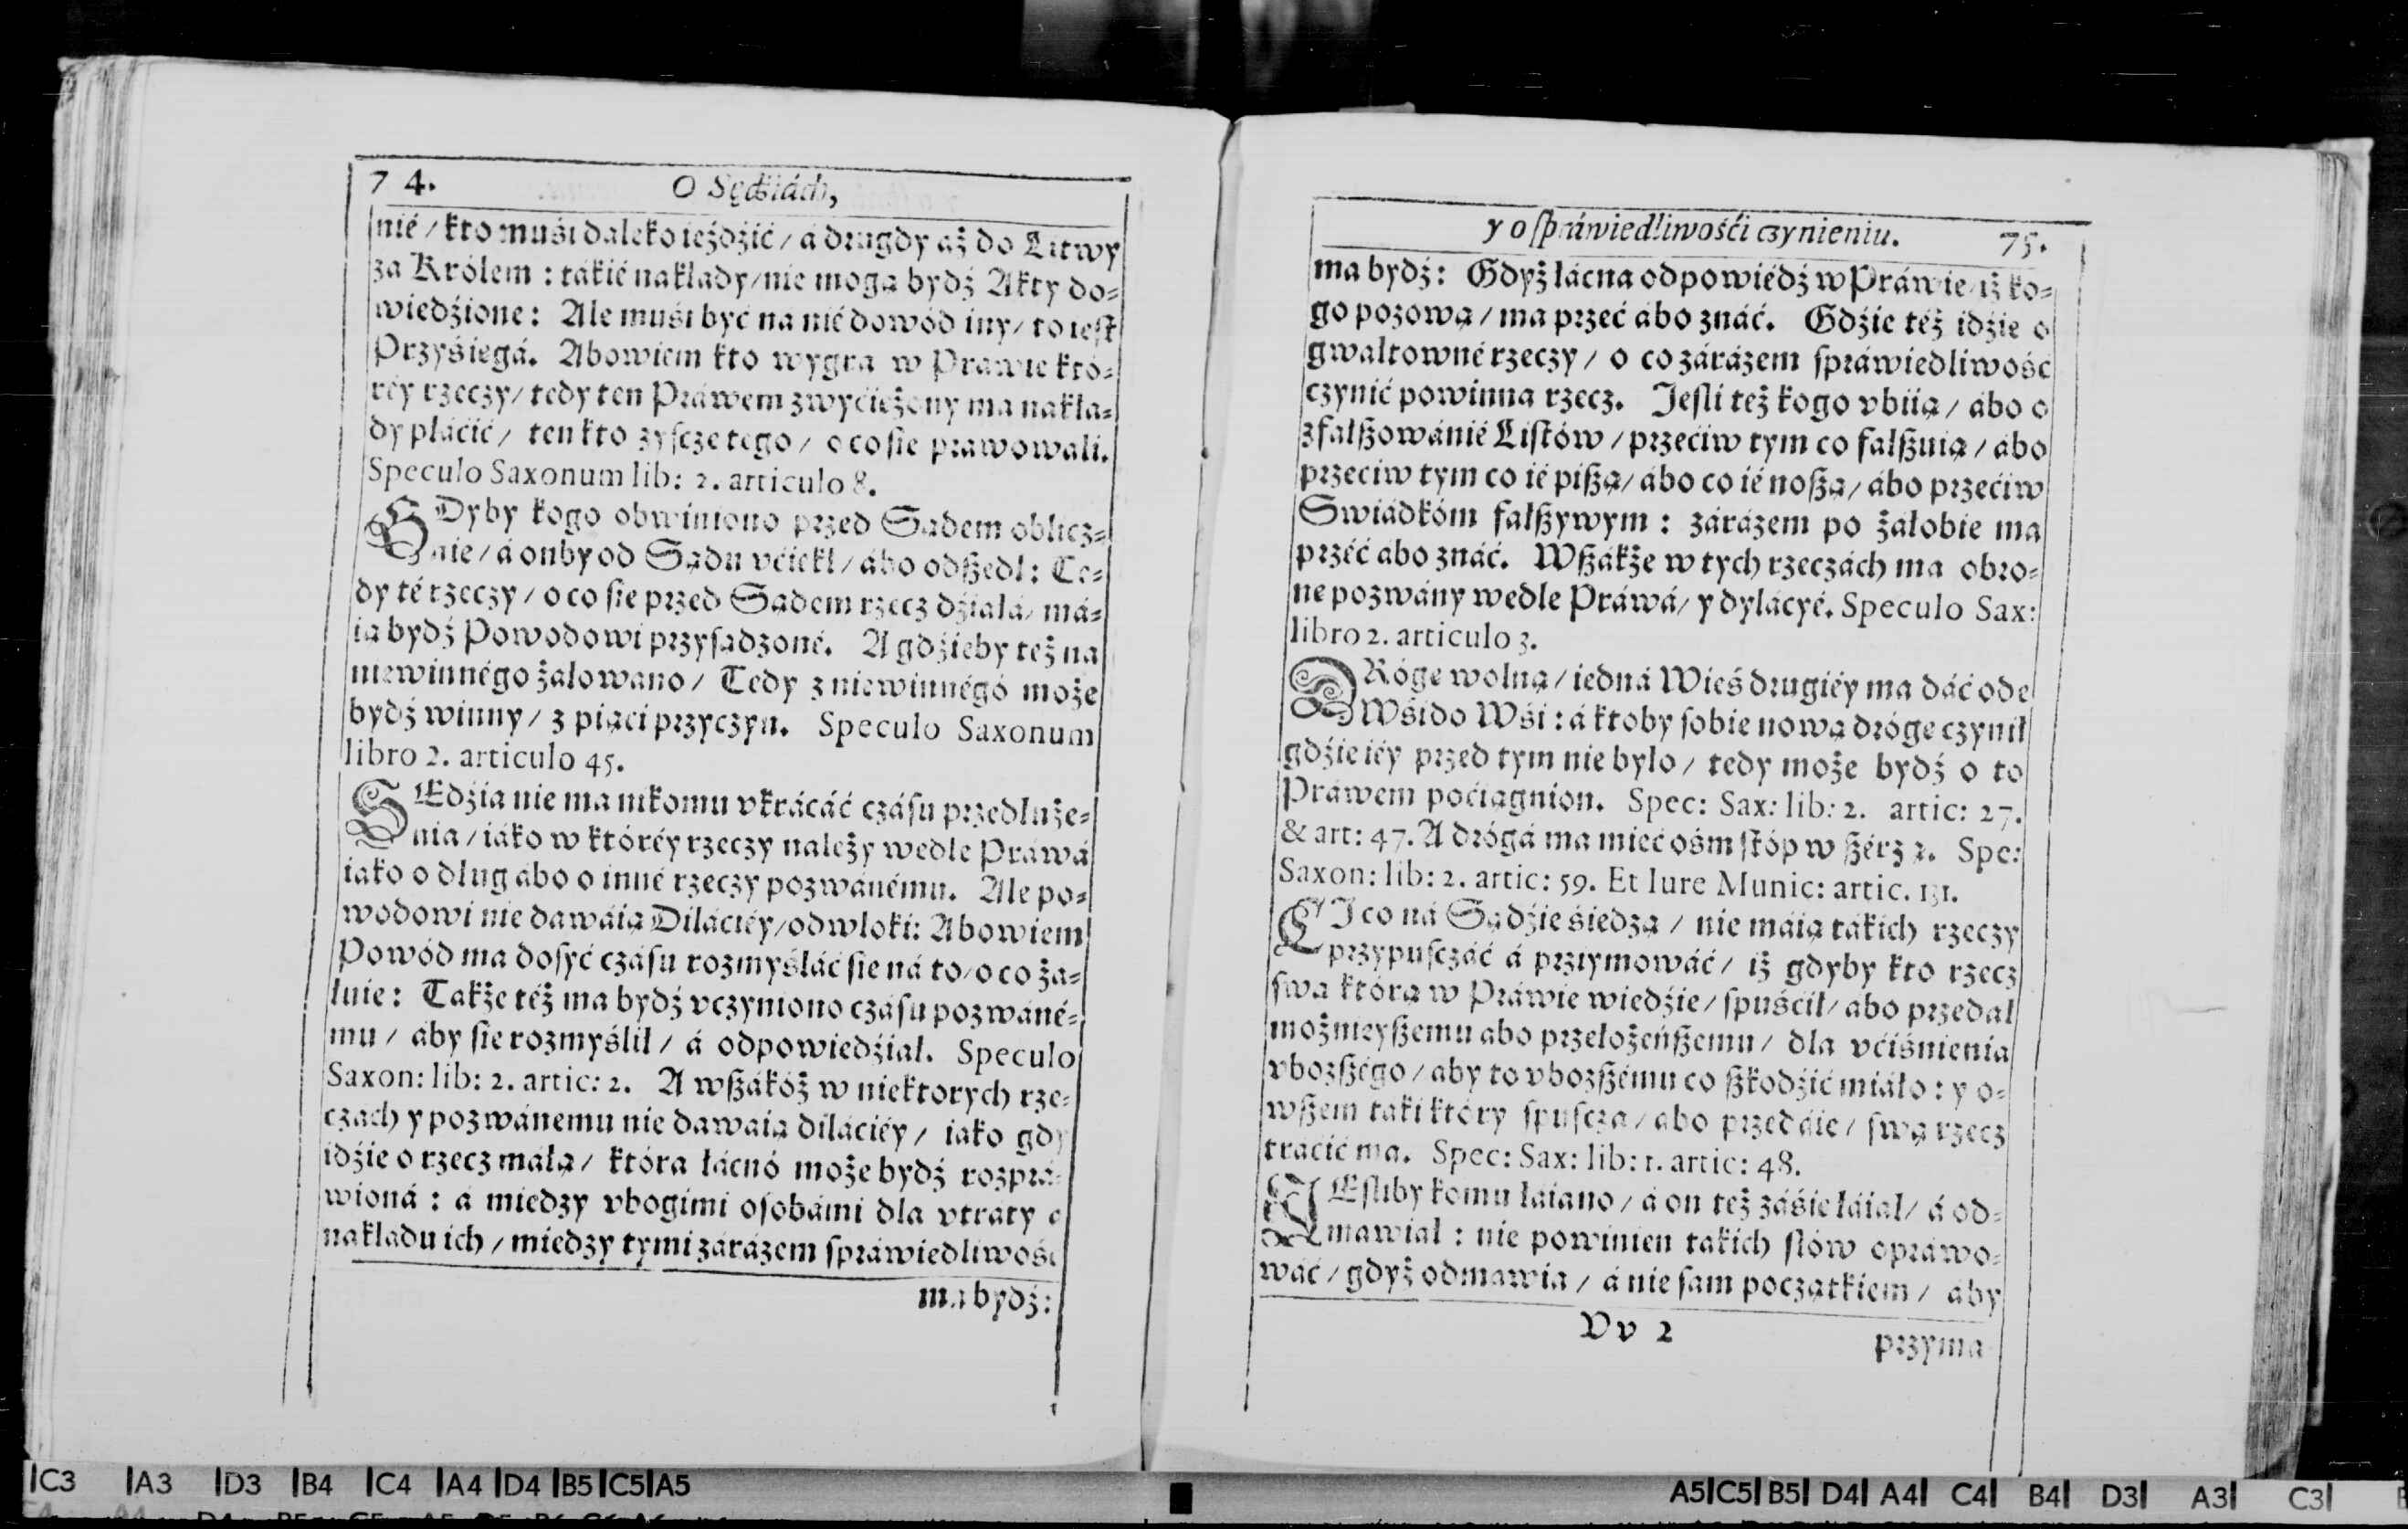 74.
O Sędźiách,
nié / kto muśi daleko ieźdźić / á drugdy aż do Litwy
za Królem : tákié nakłady / nie mogą bydź Akty do-
wiedźione: Ale muśi być na nié dowód iny / to iest
Przyśięgá. Abowiem kto wygra w Prawie któ-
réy rzeczy / tedy ten Práwem zwyćiężony ma nakła-
dy płáćić / ten kto zyscze tego / o co sie prawowali.
Speculo Saxonum lib: 2. articulo 8.
GDyby kogo obwiniono przed Sądem oblicz-
nie / á onby od Sądu vćiekł / ábo odszedł: Te-
dy té rzeczy / o co sie przed Sądem rzecz dźiałá / má-
ią bydź Powodowi przysądzoné. A gdźieby też na
niewinnégo żalowano / Tedy z niewinnégó może
bydź winny / z piąci przyczyn. Speculo Saxonum
libro 2. articulo 45.
SEdźia nie ma nikomu vkrácáć czásu przedłuże-
nia / iáko w któréy rzeczy należy wedle Prawá
iako o dług ábo o inné rzeczy pozwánému. Ale po-
wodowi nie dawáią Diláciéy / odwłoki: Abowiem
Powód ma dosyć czásu rozmyśláć sie ná to / o co ża-
łuie: Także téż ma bydź vczyniono czásu pozwáné-
mu / aby sie rozmyślił / á odpowiedźiał. Speculo
Saxon: lib: 2. artic: 2. A wszákóż w niektorych rze-
czach y pozwánemu nie dawaią diláciéy / iako gdy
idźie o rzecz máłą / która łácnó może bydź rozprá-
wioná : á miedzy vbogimi osobámi dla vtráty
nakładu ich / miedzy tymi zárázem spráwiedliwość
ma bydź:
y o spráwiedliwośći czynieniu.
75.
ma bydź: Gdyż łácna odpowiédź w Práwie / iż ko-
go pozową / ma przeć ábo znáć. Gdźie téż idźie o
gwałtowné rzeczy / o co zárázem spráwiedliwość
czynić powinna rzecz. Jesli też kogo vbiią / ábo o
zfałszowánié Listów / przećiw tym co fałszuią / ábo
przeciw tym co ié piszą / ábo co ié noszą / ábo przećiw
Swiádkóm fałszywym : zárázem po żałobie ma
przéć ábo znáć. Wszákże w tych rzeczách ma obro-
ne pozwány wedle Práwá / y dylácyé. Speculo Sax:
libro 2. articulo 3.
DRóge wolną / iedná Wieś drugiéy ma dáć ode
Wśi do Wśi : á ktoby sobie nową dróge czynił
gdźie iéy przed tym nie było / tedy może bydź o to
Práwem poćiągnion. Spec: Sax: lib: 2. artic: 27.
& art: 47. A drógá ma mieć ośm stóp w szérz 2. Spe:
Saxon: lib: 2. artic: 59. Et Iure Munic: artic. 131.
CI co ná Sądźie śiedzą / nie máią tákich rzeczy
przypusczáć á prziymowáć / iż gdyby kto rzecz
swą którą w Práwie wiedźie / spuśćił / ábo przedał
możnieyszemu abo przełożeńszemu / dla vćiśnienia
vbozszégo / aby to vbozszému co szkodźić miáło : y o-
wszem taki który spuscza / abo przedáie / swą rzecz
tracić ma. Spec: Sax: lib: 1. artic: 48.
IEsliby komu łaiano / á on też záśie łáiał / á od-
mawiał : nie powinien takich słów opráwo-
wáć / gdyż odmawia / á nie sam początkiem / aby
Vv 2
przyma
C3 A3 D3 B4 C4 A4 D4 B5 C5 A5
A5 C5 B5 D4 A4 C4 B4 D3 A3 C3